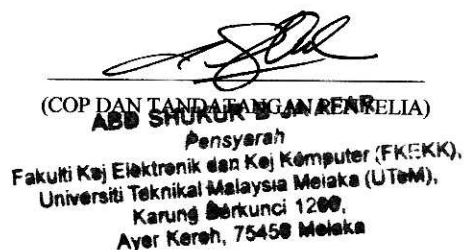 (COP DAN TANDATANGAN PENYELIA)
ABD SHUKUR B JAAFAR
Pensyarah
Fakulti Kej Elektronik dan Kej Komputer (FKEKK),
Universiti Teknikal Malaysia Melaka (UTeM),
Karung Berkunci 1200,
Ayer Keroh, 75450 Melaka